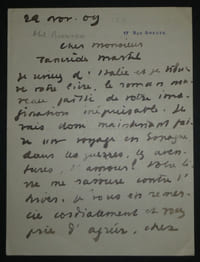 22 nov. 09
Cher monsieur
Tancrède Martel
Je reviens d'Italie et je trouve
votre livre, le roman nou
veau jailli de votre ima
gination inépuisable. Je
vais donc maintenant fai
re un voyage en Espagne
dans les guerres, les aven
tures, l'amour! Votre li
vre me rassure contre l'
hiver. Je vous en remer
cie cordialement et vous
prie d'agréer, cher